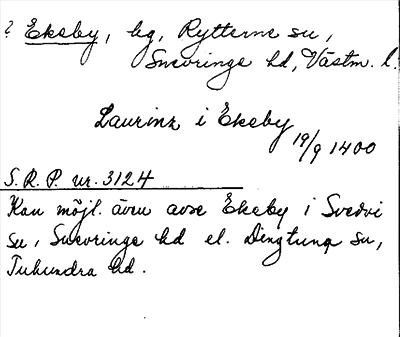 ? Ekeby, bg, Rytterne su,
Snevringe hd, Västm. l.
Laurinz i Ekeby
19/9 1400
S.R.P. nr. 3124
Kan möjl. även avse Ekeby i Svedvi
su, Snevringe hd el. Dingtuna su,
Tuhundra hd.